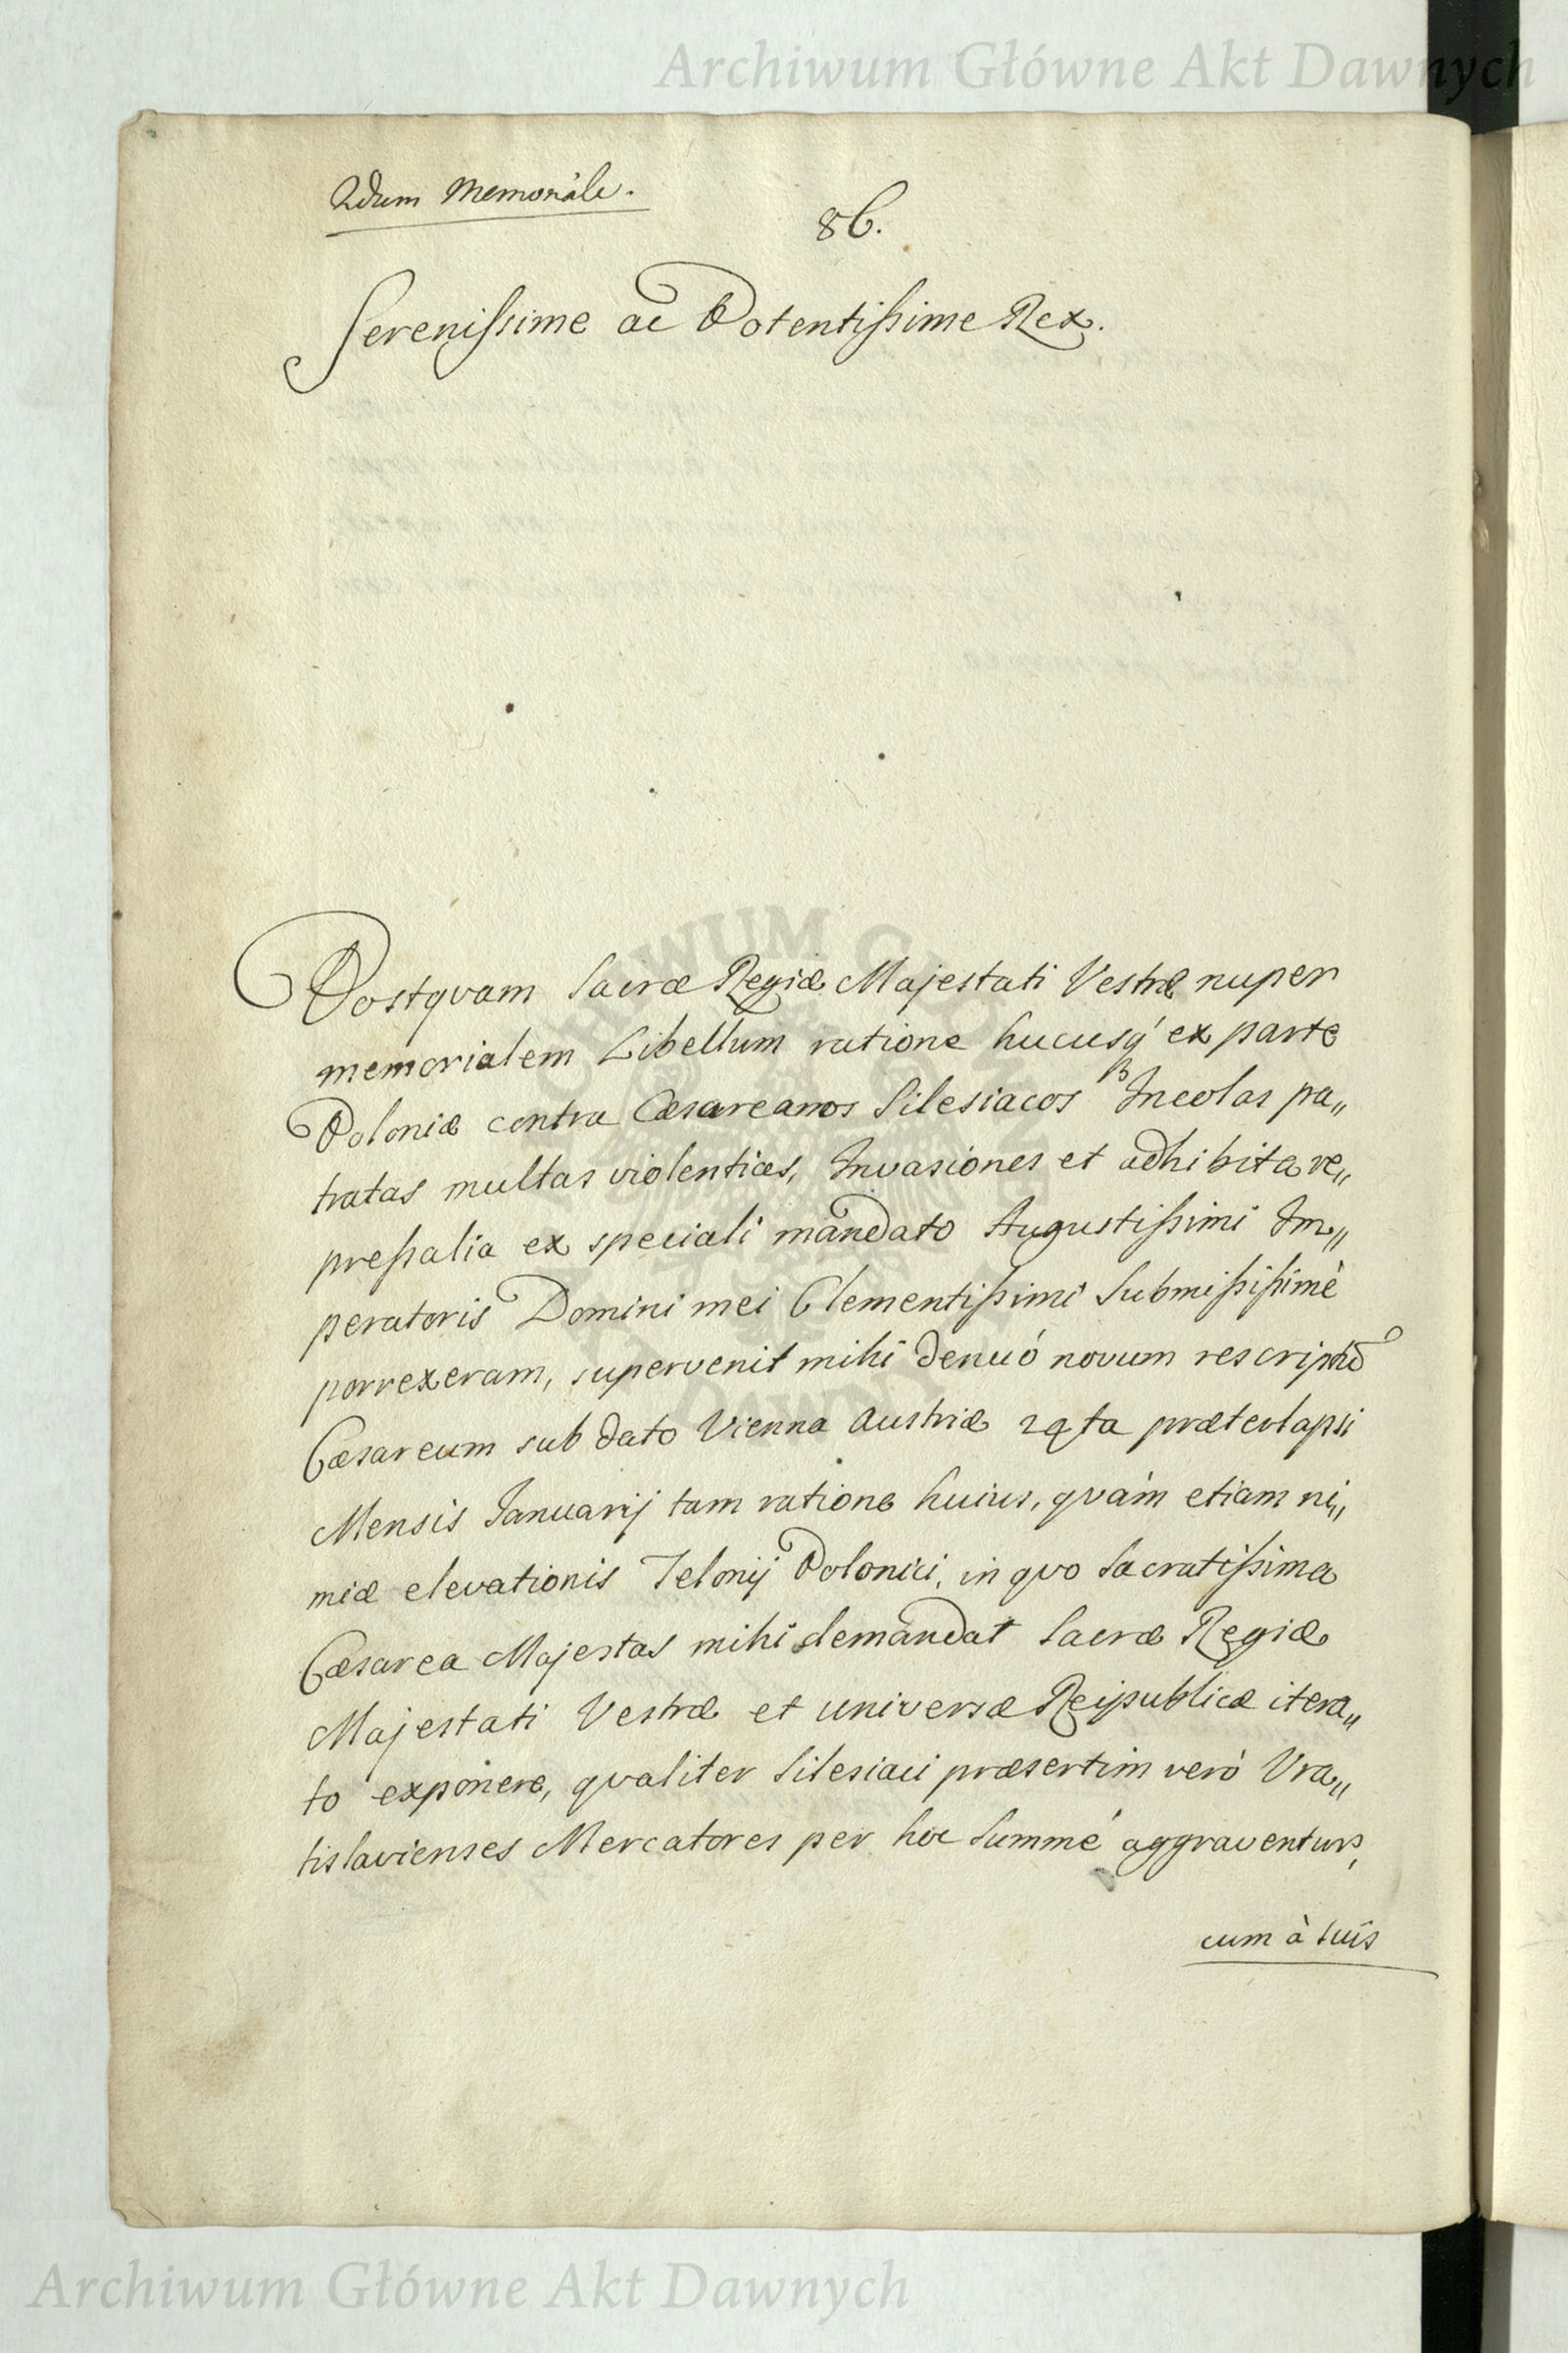 Archiwum Główne Akt Dawnych
2dum Memoriale.
86.
Serenissime ac Potentissime Rex.
Postqvam Sacræ Regiæ Majestati Vestræ nuper
memorialem Libellum ratione hucusq́ ex parte
Poloniæ contra Cæsareanos Silesiacos Incolas pa„
tratas multas violentias, Invasiones et adhibita re„
pressalia ex speciali mandato Augustissimi Im„
peratoris Domini mei Clementissimi Submississimè
porrexeram, supervenit mihi denuó novum rescriptũ
Cæsareum sub dato Vienna Austriæ 24ta præterlapsi
Mensis Januarij tam ratione huius, qvám etiam ni„
miæ elevationis Telonij Polonici, in qvo Sacratissima
Cæsarea Majestas mihi demandat Sacræ Regiæ
Majestati Vestræ et universæ Reipublicæ itera„
to exponere, qvaliter Silesiaci præsertim veró Vra„
tislavienses Mercatores per hoc Summé aggraventur,
cum à suis
Archiwum Główne Akt Dawnych